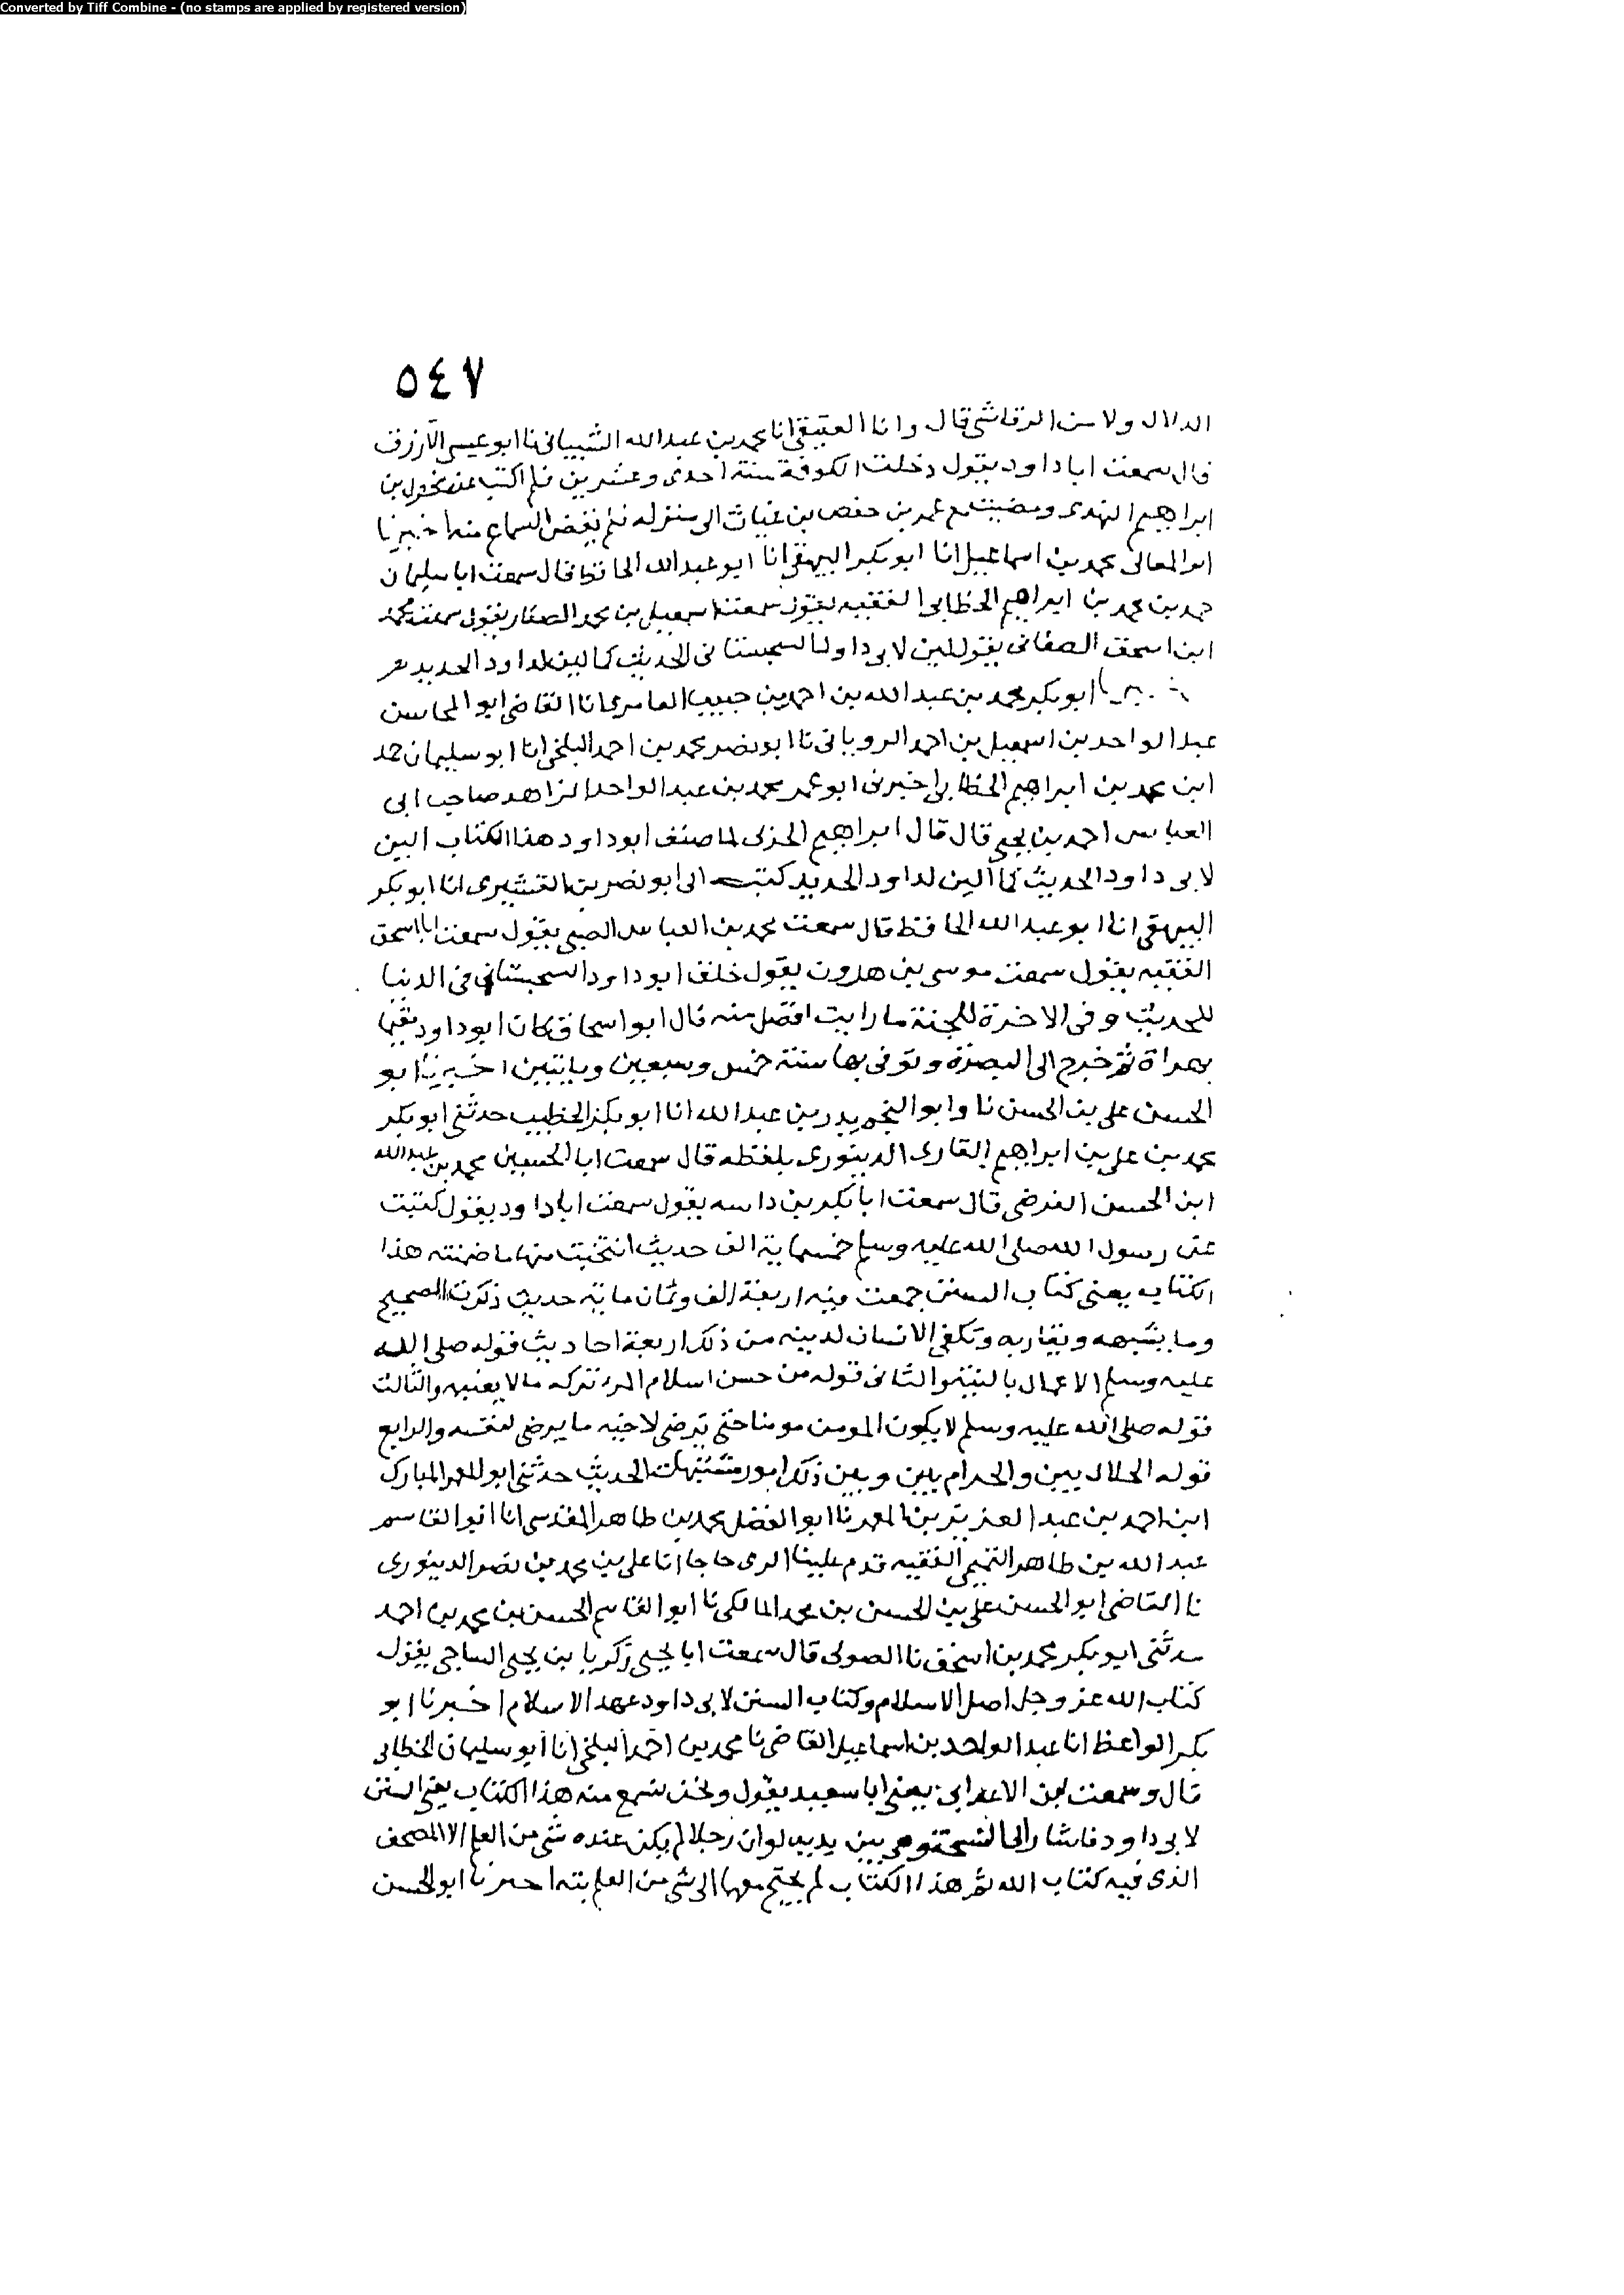 Converted by Tiff Combine - (no stamps are applied by registered version)
٥٤٧
الدلال ولا من الرقاشي قال وانا العتيقي انا محمد بن عبد الله الشيباني نا ابو عيسى الازرق
قال سمعت ابا داود يقول دخلت الكوفة سنة احدى وعشرين فلم اكتب عن مخول بن
ابراهيم النهدى ومضيت مع عمر بن حفص بن غياث الى منزله فلم يقض السماع منه اخبرنا
ابو المعالى محمد بن اسماعيل انا ابو بكر البيهقي انا ابو عبد الله الحافظ قال سمعت ابا سليمان
حمد بن محمد بن ابراهيم الخطابى الفقيه يقول سمعت اسمعيل بن محمد الصفار يقول سمعت محمد
ابن اسحق الصغانى يقول لين لابى داود السجستانى الحديث كما لين لداود الحديد
ابو بكر محمد بن عبد الله بن احمد بن حبيب العامرى انا القاضى ابو المحاسن
عبد الواحد بن اسمعيل بن احمد الرويانى نا ابو نصر محمد بن احمد البلخى انا ابو سليمان حمد
ابن محمد بن ابراهيم الخطابى اخبرنى ابو عمر محمد بن عبد الواحد الزاهد صاحب ابى
العباس احمد بن يحيى قال قال ابراهيم الحربى لما صنف ابو داود هذا الكتاب الين
لابى داود الحديث كما الين لداود الحديد كتب الى ابو نصر بن القشيرى انا ابو بكر
البيهقى انا ابو عبد الله الحافظ قال سمعت محمد بن العباس الضبى يقول سمعت ابا اسحق
الفقيه يقول سمعت موسى بن هرون يقول خلق ابو داود السجستانى فى الدنيا
للحديث وفى الاخرة للجنة ما رايت افضل منه قال ابو اسحاق كان ابو داود مقيما
بهراة ثم خرج الى البصرة وتوفى بها سنة خمس وسبعين ومايتين اخبرنا ابو
الحسن على بن الحسن نا وابو النجم بدر بن عبد الله انا ابو بكر الخطيب حدثنى ابو بكر
محمد بن على بن ابراهيم القارى الدينورى بلفظه قال سمعت ابا الحسين محمد بن عبد الله
ابن الحسن الفرضى قال سمعت ابا بكر بن داسه يقول سمعت ابا داود يقول كتبت
عن رسول الله صلى الله عليه وسلم خمسماية الف حديث انتخبت منها ما ضمنته هذا
الكتاب يعنى كتاب السنن جمعت فيه اربعة الف وثمان ماية حديث ذكرت الصحيح
وما يشبهه ويقاربه ويكفى الانسان لدينه من ذلك اربعة احاديث قوله صلى الله
عليه وسلم الاعمال بالنية والثانى قوله من حسن اسلام المرء تركه مالا يعنيه والثالث
قوله صلى الله عليه وسلم لا يكون المومن مومنا حتى يرضى لاخيه ما يرضى لنفسه والرابع
قوله الحلال بين والحرام بين وبين ذلك امور مشتبهات الحديث حدثنى ابو المعمر المبارك
ابن احمد بن عبد العزيز بن المعمر نا ابو الفضل محمد بن طاهر المقدسى انا ابو القاسم
عبد الله بن طاهر التميمى الفقيه قدم علينا الرى حاجا انا على بن محمد بن نصر الدينورى
نا القاضى ابو الحسن على بن الحسن بن محمد المالكى نا ابو القاسم الحسن بن محمد بن احمد
حدثنى ابو بكر محمد بن اسحق نا الصولى قال سمعت ابا يحيى زكريا بن يحيى الساجى يقول
كتاب الله عز وجل اصل الاسلام وكتاب السنن لابى داود عهد الاسلام اخبرنا ابو
بكر الواعظ انا عبد الواحد بن اسماعيل القاضى نا محمد بن احمد البلخى انا ابو سليمان الخطابى
قال وسمعت ابن الاعرابى يعنى ابا سعيد يقول ونحن نسمع منه هذا الكتاب يعنى السنن
لابى داود فاشار الى النسخة وهى بين يديه لو ان رجلا لم يكن عنده شى من العلم الا المصحف
الذى فيه كتاب الله ثم هذا الكتاب لم يحتج معهما الى شى من العلم بته اخبرنا ابو الحسن